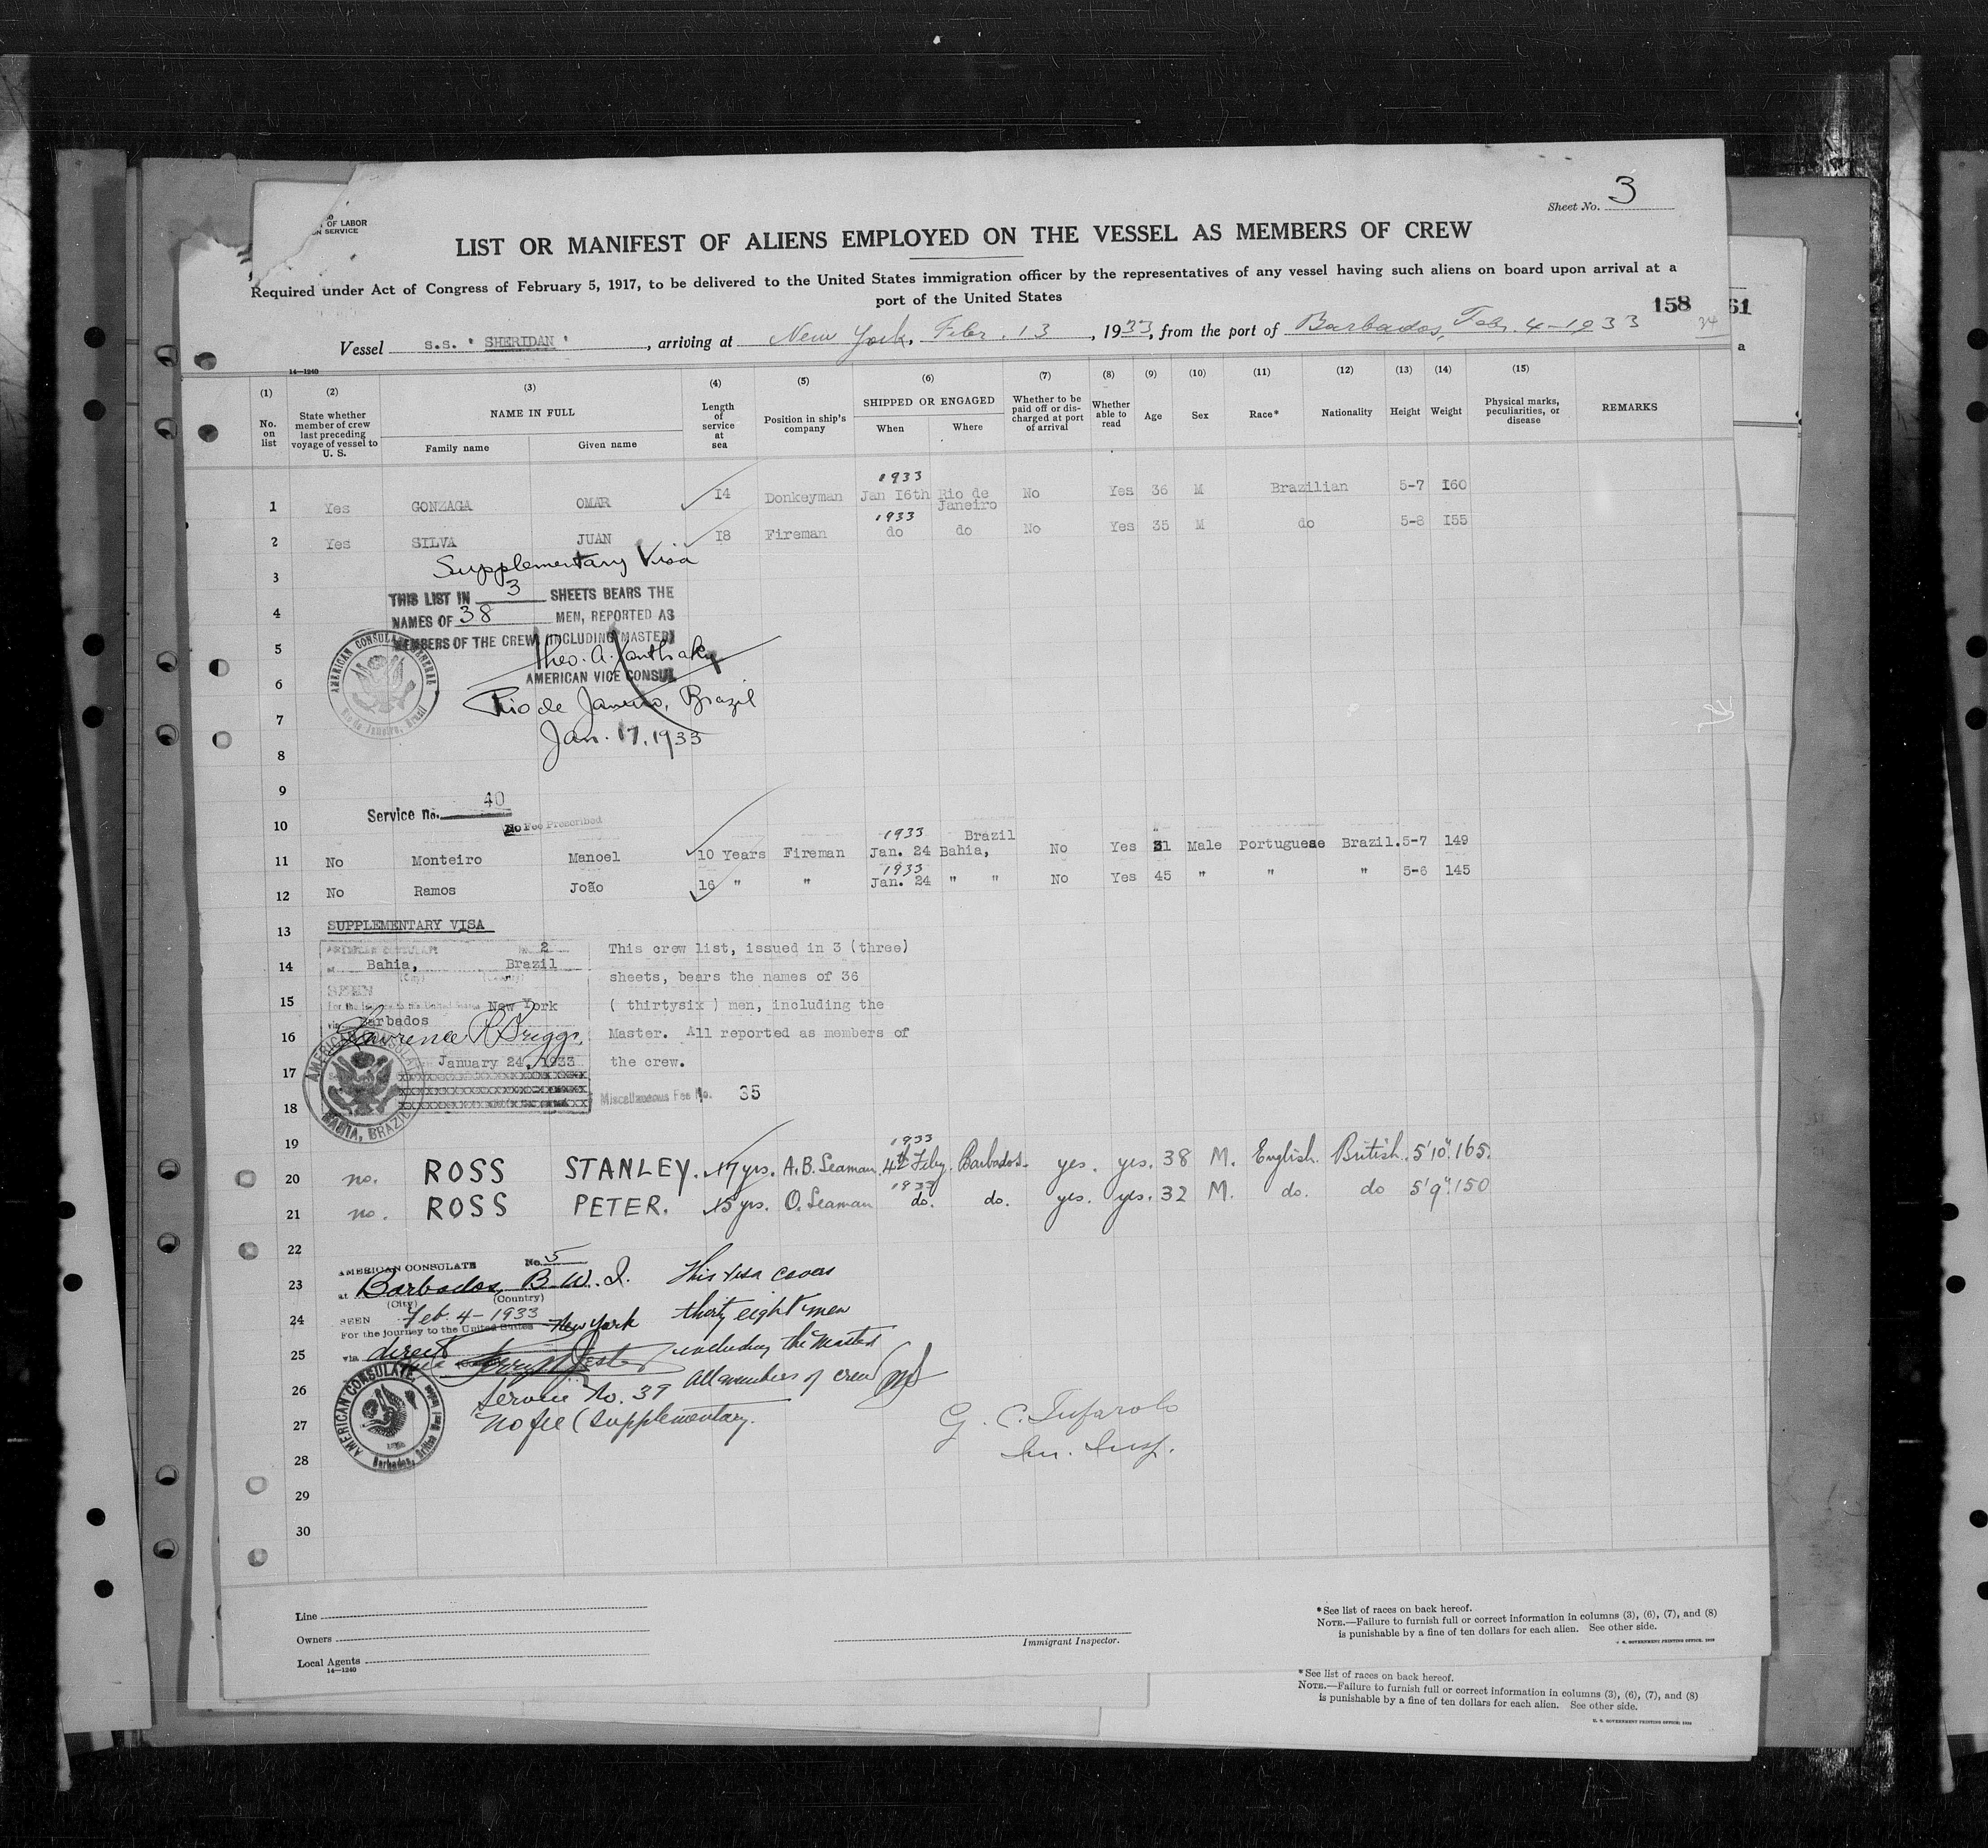 OF LABOR
SERVICE
Sheet No. 3
LIST OR MANIFEST OF ALIENS EMPLOYED ON THE VESSEL AS MEMBERS OF CREW
Required under Act of Congress of February 5, 1917, to be delivered to the United States immigration officer by the representatives of any vessel having such aliens on board upon arrival at a
port of the United States
158 61
Vessel s.s. ' SHERIDAN ' , arriving at New York, Febr. 13 , 1933, from the port of Barbados, Feb. 4-1933
24
a
14—1240
(1) (2) (3) (4) (5) (6) (7) (8) (9) (10) (11) (12) (13) (14) (15)
No. on list State whether member of crew last preceding voyage of vessel to U. S. NAME IN FULL Family name Given name Length of service at sea Position in ship's company SHIPPED OR ENGAGED When Where Whether to be paid off or discharged at port of arrival Whether able to read Age Sex Race* Nationality Height Weight Physical marks, peculiarities, or disease REMARKS
1 Yes GONZAGA OMAR 14 Donkeyman 1933 Jan 16th Rio de Janeiro No Yes 36 M Brazilian 5-7 160
2 Yes SILVA JUAN 18 Fireman 1933 do do No Yes 35 M do 5-8 155
3 Supplementary Visa
THIS LIST IN 3 SHEETS BEARS THE
4 NAMES OF 38 MEN, REPORTED AS
5 MEMBERS OF THE CREW (INCLUDING MASTER)
Theo. A. Xanthaky
6 AMERICAN VICE CONSUL
7 Rio de Janeiro, Brazil
8 Jan. 17, 1933
AMERICAN CONSULATE GENERAL
Rio de Janeiro, Brazil
9
10 Service no. 40
No Fee Prescribed
11 No Monteiro Manoel 10 Years Fireman 1933 Jan. 24 Brazil Bahia, No Yes 31 Male Portuguese Brazil. 5-7 149
12 No Ramos João 16 " " 1933 Jan. 24 " " No Yes 45 " " " 5-6 145
13 SUPPLEMENTARY VISA
AMERICAN CONSULATE No. 2
14 at Bahia, Brazil
(City) (Country)
SEEN
15 For the journey to the United States New York
via Barbados
16 Lawrence R Briggs,
17 January 24, 1933
18
AMERICAN CONSULATE
BAHIA, BRAZIL
This crew list, issued in 3 (three)
sheets, bears the names of 36
( thirtysix ) men, including the
Master. All reported as members of
the crew.
Miscellaneous Fee No. 35
19
20 no. ROSS STANLEY. 17 yrs. A.B. Seaman. 1933 4th Feby. Barbados. yes. yes. 38 M. English. British. 5'10". 165.
21 no. ROSS PETER. 15 yrs. O. Seaman 1933 do. do. yes. yes. 32 M. do. do 5'9". 150
22
AMERICAN CONSULATE No. 5
23 at Barbados, B.W.I.
(City) (Country)
24 SEEN Feb. 4-1933
For the journey to the United States New York
25 via direct
26 Service No. 39
27 No fee (supplementary.
This visa covers
thirty eight men
including the Master
All members of crew
AMERICAN CONSULATE,
Barbados, British West Indies
G. C. Tufarolo
Im. Insp.
28
29
30
Line
Owners
Local Agents
14—1240
Immigrant Inspector.
*See list of races on back hereof.
NOTE.—Failure to furnish full or correct information in columns (3), (6), (7), and (8)
is punishable by a fine of ten dollars for each alien. See other side.
U. S. GOVERNMENT PRINTING OFFICE: 1929
*See list of races on back hereof.
NOTE.—Failure to furnish full or correct information in columns (3), (6), (7), and (8)
is punishable by a fine of ten dollars for each alien. See other side.
U. S. GOVERNMENT PRINTING OFFICE: 1929